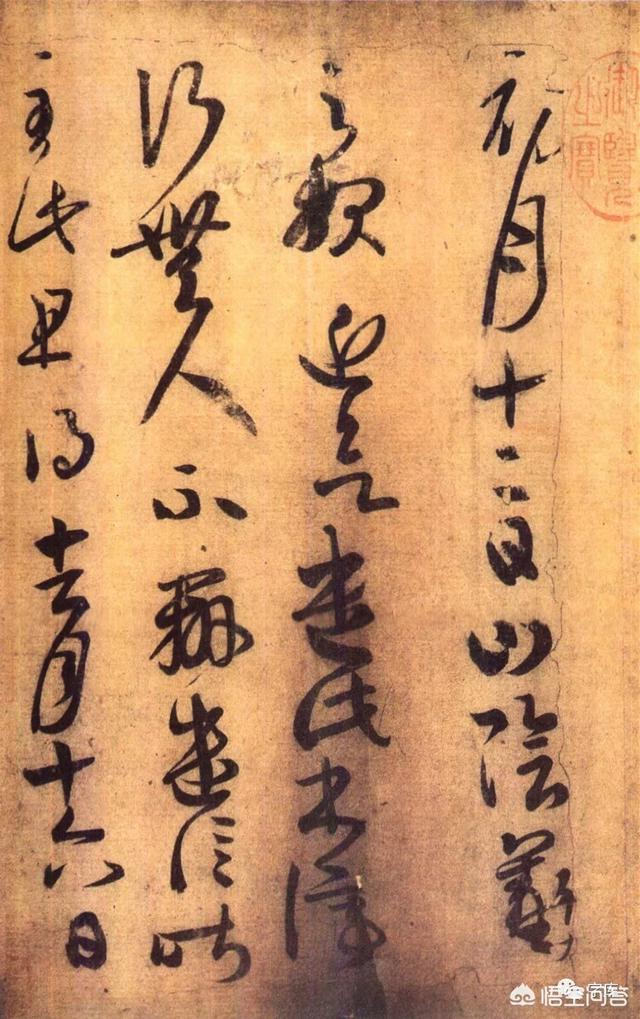 初月十二日山陰羲
之報近欲遣此書停
行無人不辦遣信昨
至此且得去月十六日
御覽之寶
悟空问答